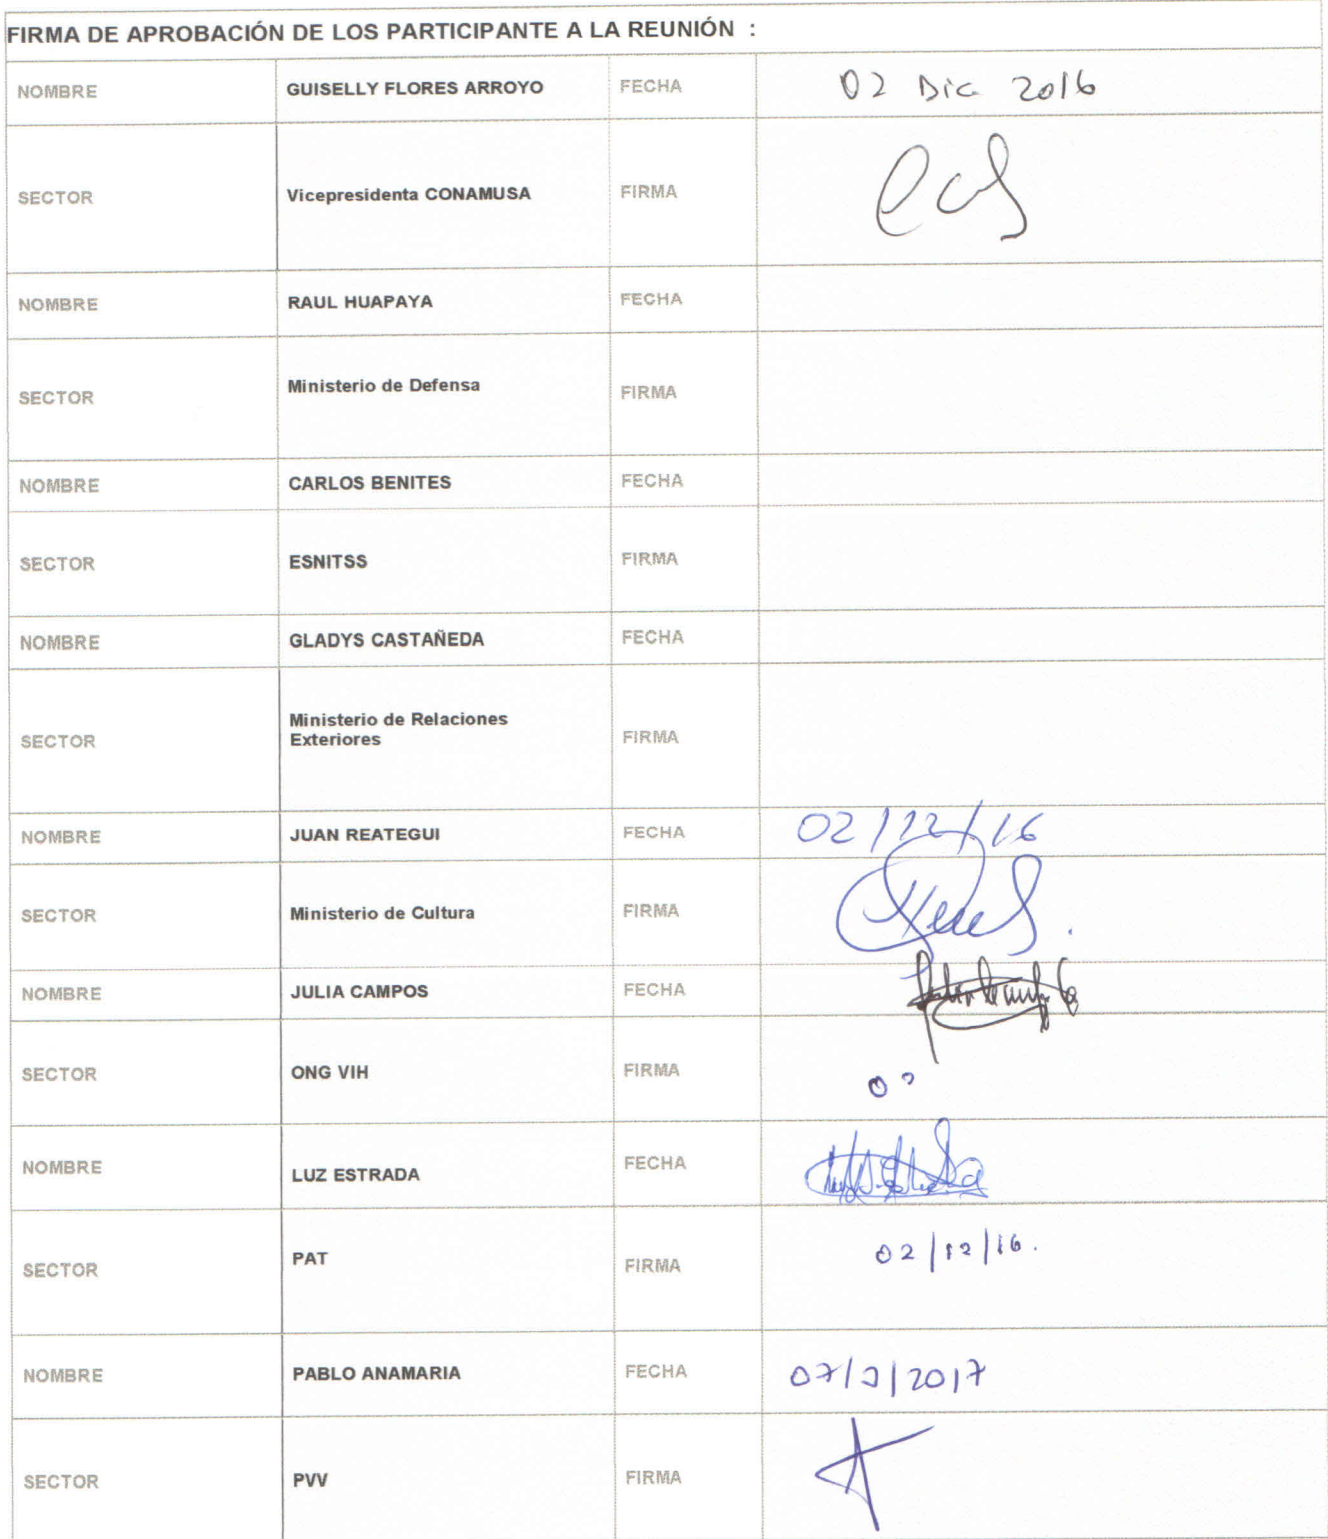 FIRMA DE APROBACIÓN DE LOS PARTICIPANTE A LA REUNIÓN :
NOMBRE GUISELLY FLORES ARROYO FECHA 02 Dic 2016
SECTOR Vicepresidenta CONAMUSA FIRMA
NOMBRE RAUL HUAPAYA FECHA
SECTOR Ministerio de Defensa FIRMA
NOMBRE CARLOS BENITES FECHA
SECTOR ESNITSS FIRMA
NOMBRE GLADYS CASTAÑEDA FECHA
SECTOR Ministerio de Relaciones
Exteriores FIRMA
NOMBRE JUAN REATEGUI FECHA 02/12/16
SECTOR Ministerio de Cultura FIRMA
NOMBRE JULIA CAMPOS FECHA
SECTOR ONG VIH FIRMA
NOMBRE LUZ ESTRADA FECHA
SECTOR PAT FIRMA 02/12/16.
NOMBRE PABLO ANAMARIA FECHA
SECTOR PVV FIRMA